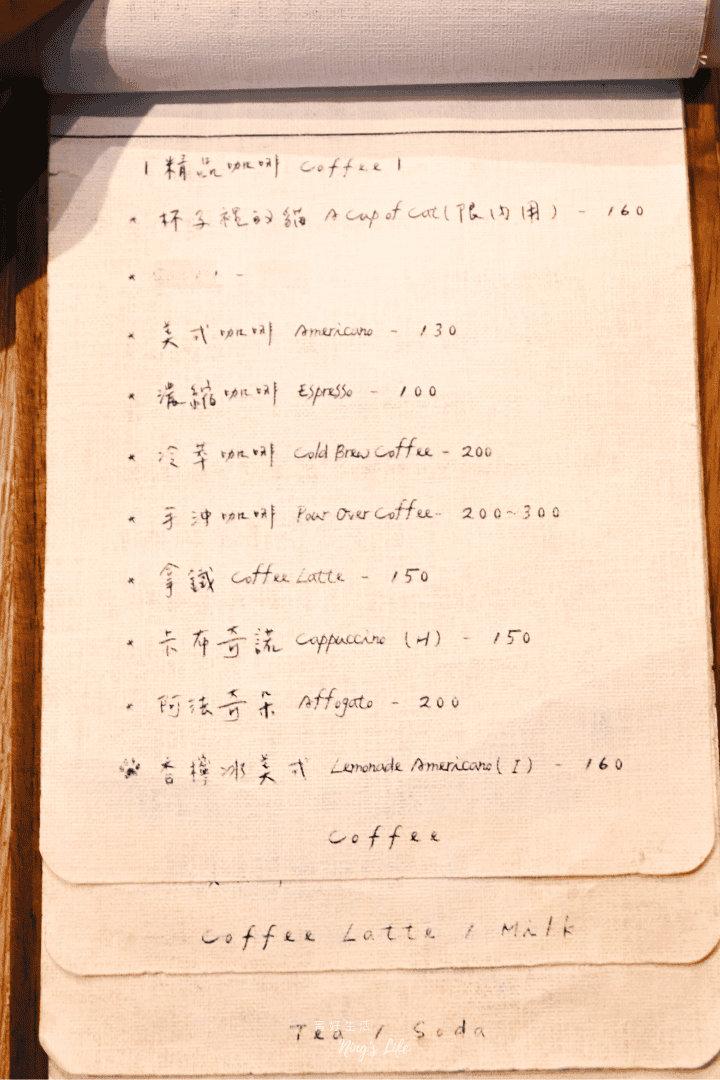 | 精品咖啡 Coffee |
* 杯子裡的貓 A Cup of Cat (限內用) - 160
* 美式咖啡 Americano - 130
* 濃縮咖啡 Espresso - 100
* 冷萃咖啡 Cold Brew Coffee - 200
* 手沖咖啡 Pour Over Coffee - 200~300
* 拿鐵 Coffee Latte - 150
* 卡布奇諾 Cappuccino (H) - 150
* 阿法奇朵 Affogato - 200
香檸冰美式 Lemonade Americano (I) - 160
Coffee
Coffee Latte / Milk
Tea / Soda
Ning's Life